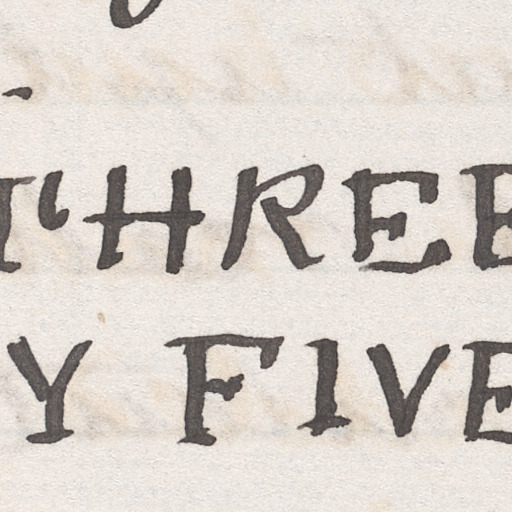 THREE
Y FIVE